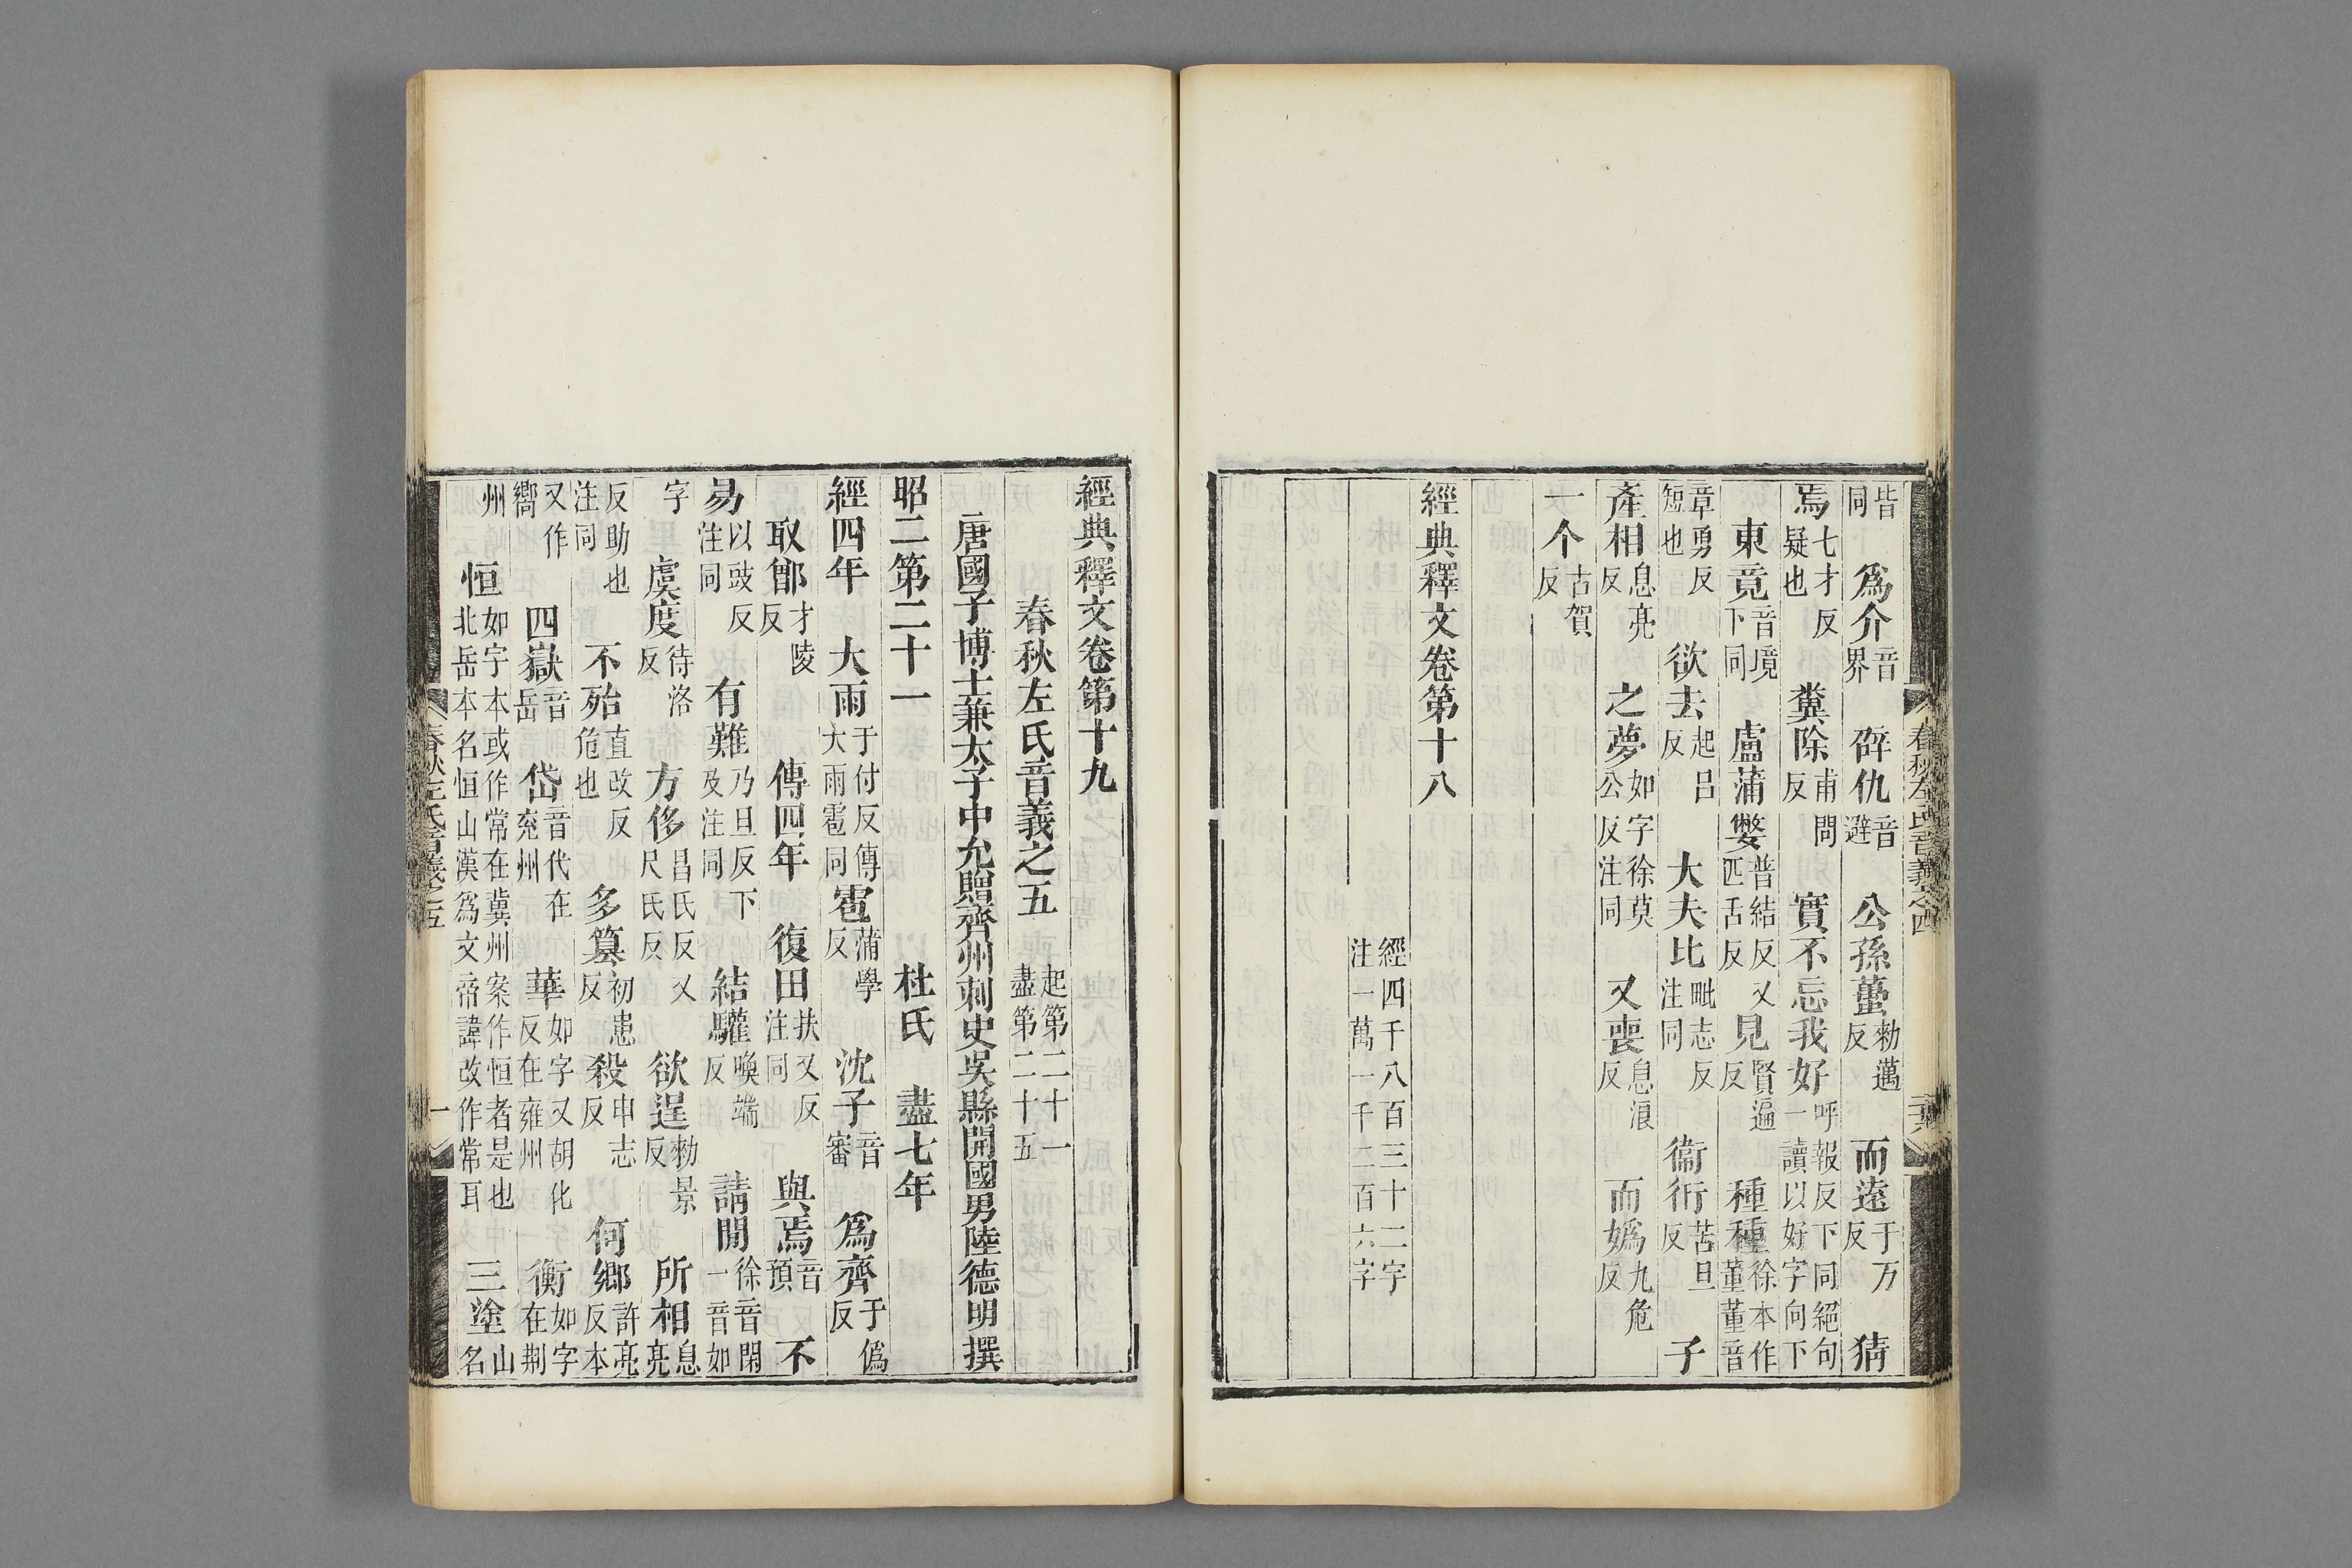 皆同　爲介音界　碎仇音避　公孫蠆勑邁反　而遠于万反　猜
焉七才反疑也　糞除甫問反　實不忘我好呼報反下同絕句一讀以好字向下
東竟音境下同　盧蒲嫳普結反又匹舌反　見賢遍反　種種徐本作董董音
章勇反短也　欲去起呂反　大夫比毗志反注同　衞衎苦旦反　子
產相息亮反　之夢如字徐莫公反注同　又喪息浪反　而嬀九危反
一个古賀反
經典釋文卷第十八
經四千八百三十二字
注一萬一千二百六字
春秋左氏音義之四
經典釋文卷第十九
春秋左氏音義之五起第二十一盡第二十五
唐國子博士兼太子中允贈齊州刺史吳縣開國男陸德明撰
昭二第二十一　杜氏　盡七年
經四年　大雨于付反傳大雨雹同　雹蒲學反　沈子音審　爲齊于僞反
取鄫才陵反　傳四年　復田扶又反注同　與焉音預　不
易以豉反注同　有難乃旦反下及注同　結驩喚端反　請閒徐音閑一音如
字　虞度待洛反　方侈昌氏反又尺氏反　欲逞勑景反　所相息亮
反助也注同　不殆直改反危也　多篡初患反　殺申志反　何鄉許亮反本
又作嚮　四嶽音岳　岱音代在兗州　華如字又胡化反在雍州　衡如字在荆
州　恒如字本或作常在冀州案作恒者是也北岳本名恒山漢爲文帝諱改作常耳　三塗山名
春秋左氏音義之五　一